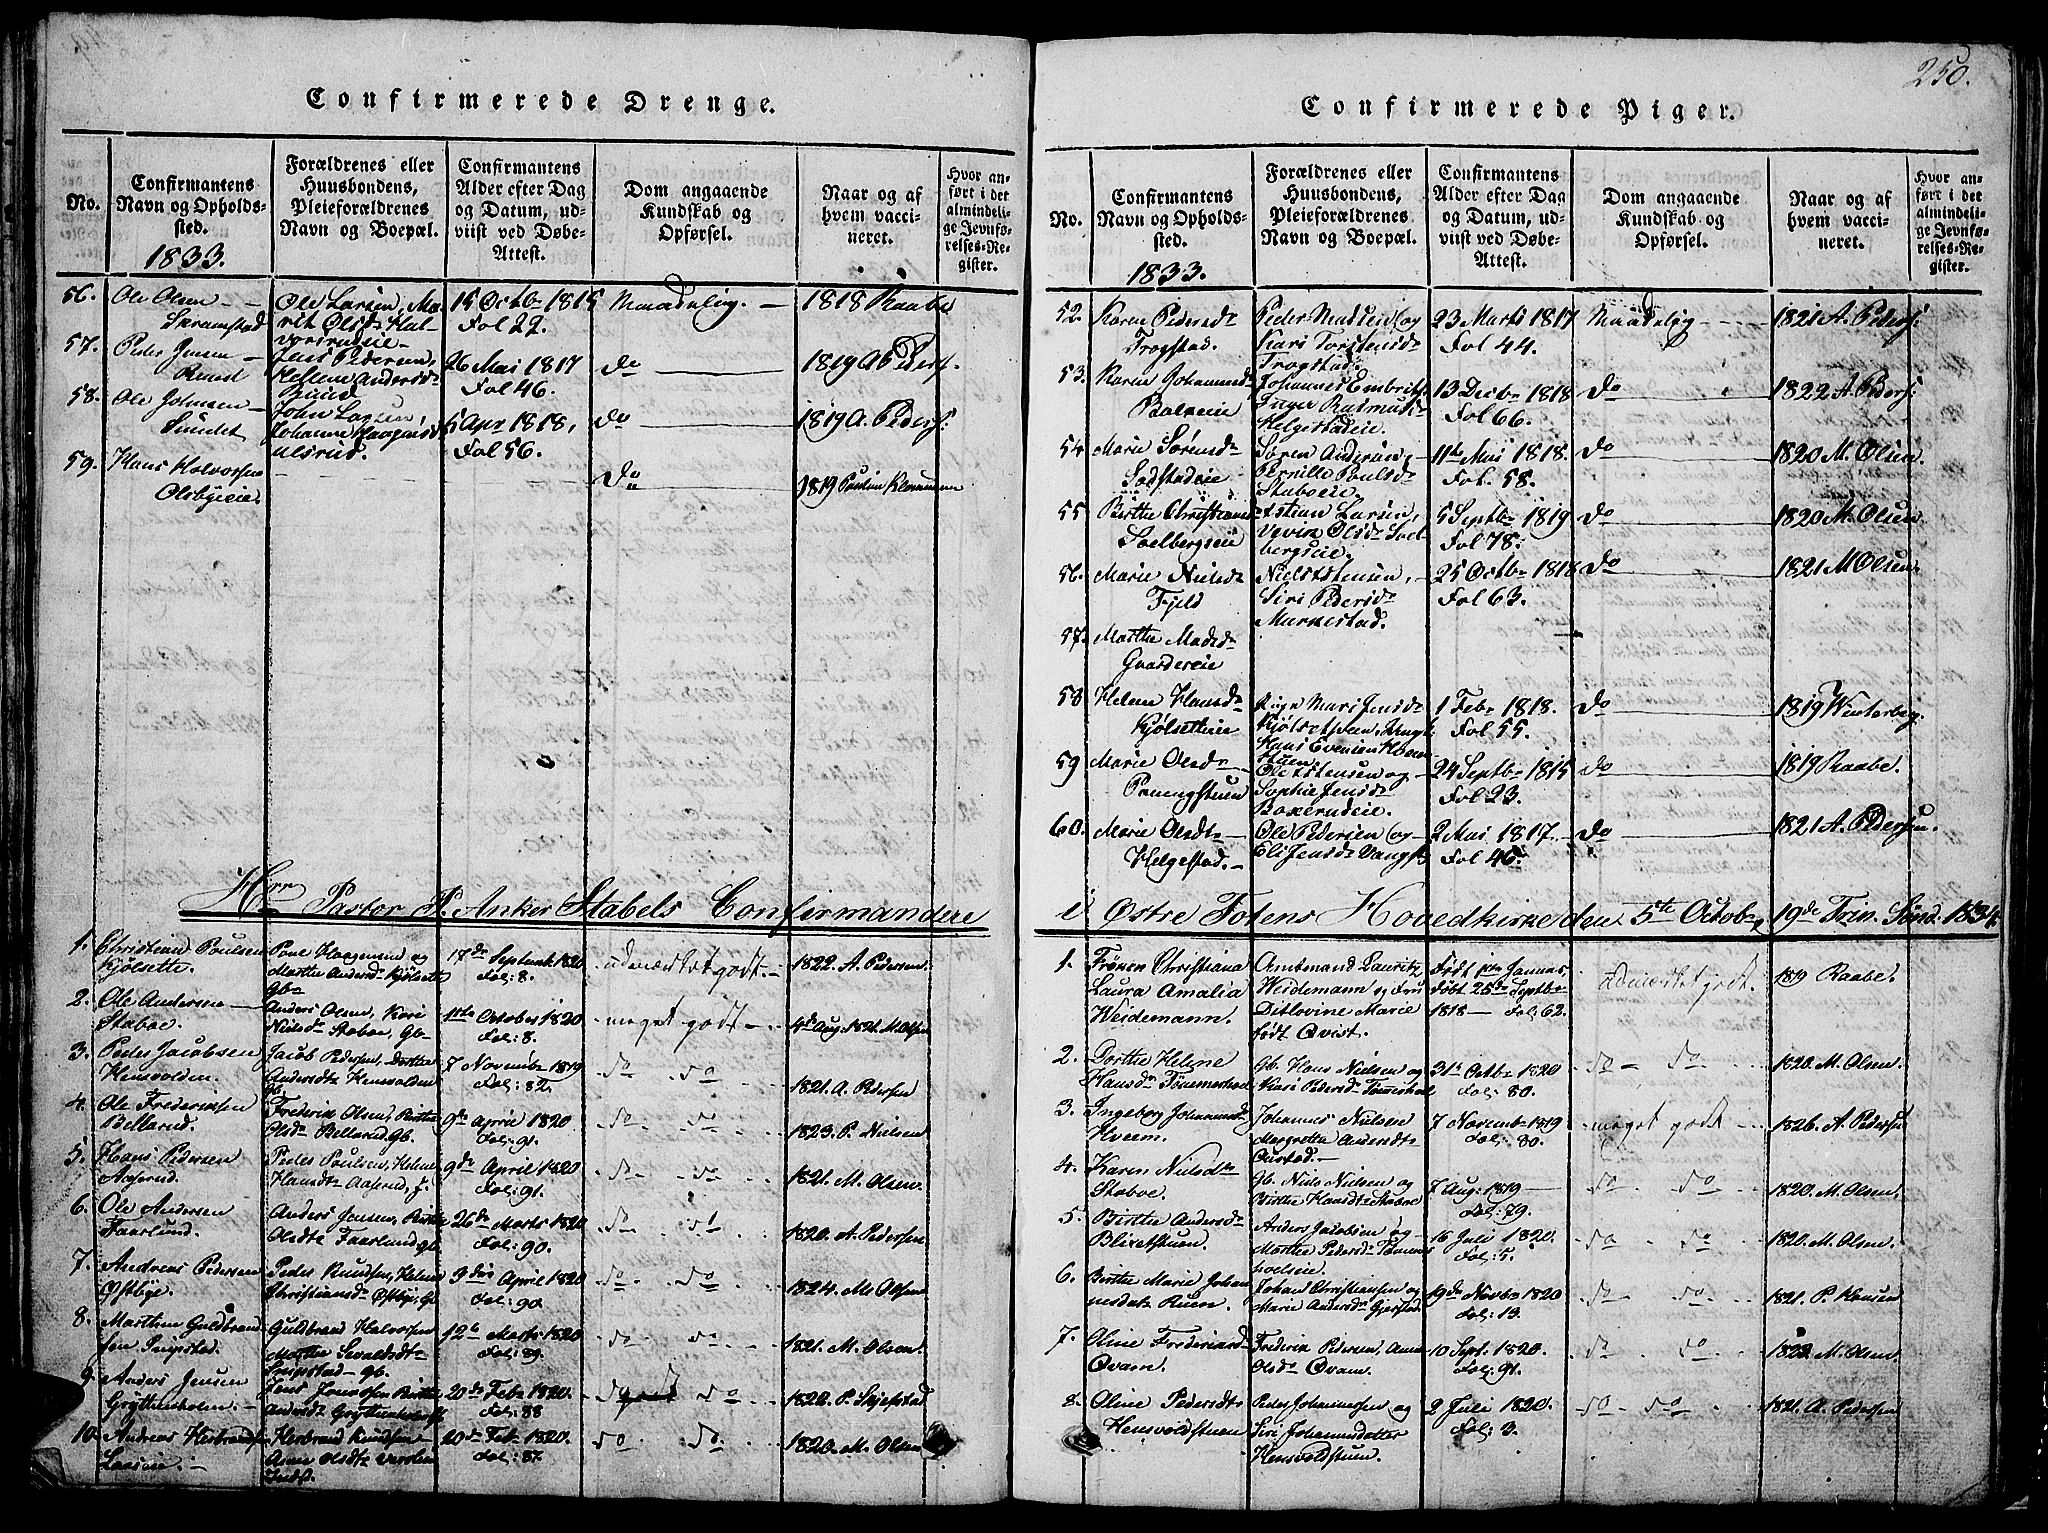 250.
Confirmerede Drenge.
No.
Confirmantens
Navn og Opholds-
sted.
1833.
Forældrenes eller
Huusbondens,
Pleieforældrenes
Navn og Boepæl.
Confirmantens
Alder efter Dag
og Datum, ud-
viist ved Døbe-
Attest.
Dom angaaende
Kundskab og
Opførsel.
Naar og af
hvem vacci-
neret.
Hvor an-
ført i det
almindeli-
ge Jevnfø-
relses-Re-
gister.
56. Ole Olsen
Ole Larsen, Ma-
rit Olsdr Hal-
15 Octbr 1815
Fol 22.
Maadelig.
1818 Raabe
57. Peder Jensen
Ruud
Jens Pedersen,
Hellene Andersdr
Ruud
26 Mai 1817
Fol 46.
do
1819 Peders.
58. Ole Johnsen
Sundet
John Larsen,
Johanne Haagensd
ulsrud.
5 Apr 1818,
Fol 56.
do
1819 A. Peders:
59. Hans Halvorsen
Olsbyeie.
do
1819 Pastor
Herr Pastor P. Anker Stabels Confirmandere
1. Christian Poulsen
Kjølsette.
Poul Haagensen og
Marthe Andersd Kjølsette
Gb.
17de Septemb. 1820
Fol: 8.
udmærket godt.
1822. A. Pedersen.
2. Ole Andersen
Staboe.
Anders Olsen, Kari
Nielsdr Staboe, Gb.
11te October 1820
Fol: 8.
meget godt
4de Aug. 1821. M. Olsen
3. Peder Jacobsen
Hensvolden.
Jacob Pedersen, Dorthe
Andersdt Hensvolden
Gb.
7 Novembr 1819
Fol: 82.
do do
1821. A. Pedersen
4. Ole Fredriksen
Bellerud.
Frederik Olsen, Birthe
Olsdr Bellerud, Gb.
9de April 1820
Fol: 91.
do do
1823. P. Nielsen
5. Hans Pedersen
Aaserud.
Peder Poulsen, Helene
Hansdt Aaserud,
9de April 1820
Fol: 91.
do do
1821. M. Olsen.
6. Ole Andersen
Faarlund.
Anders Jensen, Birthe
Olsdt Faarlund, gb.
26de Marts 1820
Fol: 90.
do do
1820. A. Pedersen
7. Andreas Pedersen
Østbye.
Peder Knudsen, Helene
Christiansd Østbye, Gb
9de April 1820
Fol: 90.
do do
1824. M. Olsen
8. Marthin Guldbrand-
sen Sivistad.
Guldbrand Halvorsen
Marthe Sevaldsdt
Gb.
12te Marts 1820
Fol: 89.
do do
1821. M. Olsen
9. Anders Jensen
Grythenholen.
Jens Jonassen Birthe
Andersdt
20de Feb 1820.
Fol: 88
do do
1822. P. Skjefstad
10. Andreas Herbrandsen
Herbrand Knudsen
20de Feb 1820.
Fol: 87.
do do
1820. M. Olsen
Confirmerede Piger.
No.
Confirmantens
Navn og Opholds-
sted.
1833.
Forældrenes eller
Huusbondens,
Pleieforældrenes
Navn og Boepæl.
Confirmantens
Alder efter Dag
og Datum, ud-
viist ved Døbe-
Attest.
Dom angaaende
Kundskab og
Opførsel.
Naar og af
hvem vacci-
neret.
Hvor an-
ført i det
almindeli-
ge Jevnfø-
relses-Re-
gister.
52. Karen Pedersdr
Trogstad.
Peder Madsen og
Kari Torstensdr
Trogstad.
23 Marts 1817
Fol 44.
Maadelig
1821 A. Peders:
53. Karen Johannesd
Balkeeie
Johannes Embretsen
Inger Rasmusd
Helgestadeie.
13 Decbr 1818
Fol 66.
do
1822 A. Peders:
54 Marie Sørensdr
Sodstadeie
Søren Andersen,
Pernille Poulsdr
Staboeie.
11te Mai 1818.
Fol. 58.
do
1820 M. Olsen.
55 Birthe Christiansd
Soelbergseie
Larsen,
Olsdr Soel-
bergseie.
5 Septbr 1819
Fol 78.
do
1820 M. Olsen
56. Marie Nielsdr
Fjeld
Niels Stensen,
Siri Pedersdr
Murkestad.
25 Octbr 1818
Fol 63.
do
1821 M Olsen.
57. Marthe Madsdr
Gaardereie
58 Helene Hansdr
Kjølsetheie
Pige Mari Jensdr
Kjølseth
Hans Evensen
1 Febr 1818.
Fol 55.
do
1819 Winterberg
59 Marie Olsdr
Prmengstuen
Ole Stensen og
Sophie Jensdr
Boxerudeie.
24 Septbr 1815
Fol 23.
do
1819 Raabe.
60. Marie Olsdt
Helgestad.
Ole Pedersen og
Eli Jensdr Vangst
2 Mai 1817.
Fol 46.
do
1821 A. Pedersen.
i Østre Totens Hovedkirke den 5te Octobr 19de Trin. Sønd: 1834.
1. Frøken Christiana
Laura Amalia
Weidemann.
Amtmand Lauritz
Weidemann og Fru
Ditlovine Marie
født Qvist.
Født 1ste Januar,
Døbt 25de Septbr
1818 Fol; 62.
udmærket godt.
1819 Raabe.
2. Dorthe Helene
Hansdr Tømmerhoel
Gb. Hans Nielsen og
Kari Pedersdr Tømmerhoel
31te Octbr 1820
Fol: 80.
do do
1820. M. Olsen.
3. Ingeborg Johannesd
Hveem.
Johannes Nielsen
Margrethe Andersdt
7 Novembr 1819
Fol: 80.
meget godt
1826. A. Pedersen
4. Karen Nielsdr
Staboe.
Gb. Niels Nielsen og
Birthe Hansdt Staboe
7 Aug: 1819
Fol: 79.
do do
1820. M. Olsen.
5. Birthe Andersdr
Blixetstuen.
Anders Jacobsen og
Marthe Pedersdr Tømmer
hoelseie.
16 Juli 1820.
Fol: 5.
do do
1820. M. Olsen.
6. Birthe Marie Johan
nesdatr Ruen.
Johan Christiansen og
Marie Andersdr Gjerstad
19de Novbr 1820
Fol: 13.
do do
1821. P. Hansen
7. Oline Frederiksd
Qvam.
Frederik Pedersen, Anne
Olsdr Qvam.
10 Sept. 1820.
Fol: 91.
do do
1822. M. Olsen
8. Oline Pedersdt
Hensvoldstuen
Peder Johannesen og
Siri Johannesdatter
Hensvoldstuen.
2 Juli 1820.
Fol: 3.
do do
1821. A. Pedersen